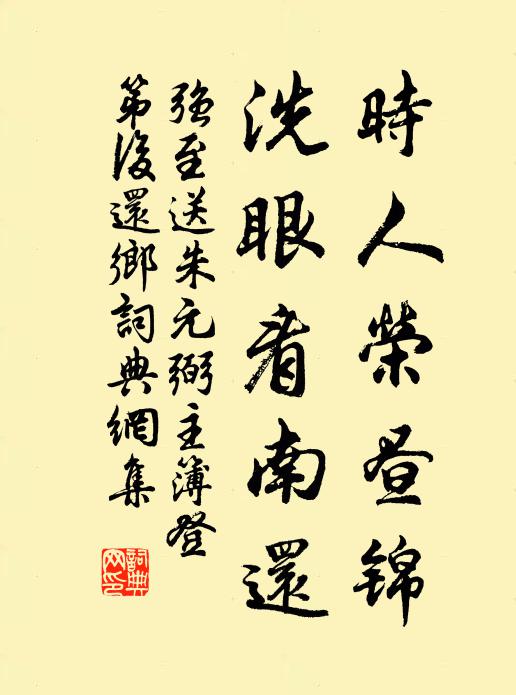 時人榮昼锦
洗眼看南還
強至送朱元弼主簿登
第後還鄉詞典網集
詞典網印